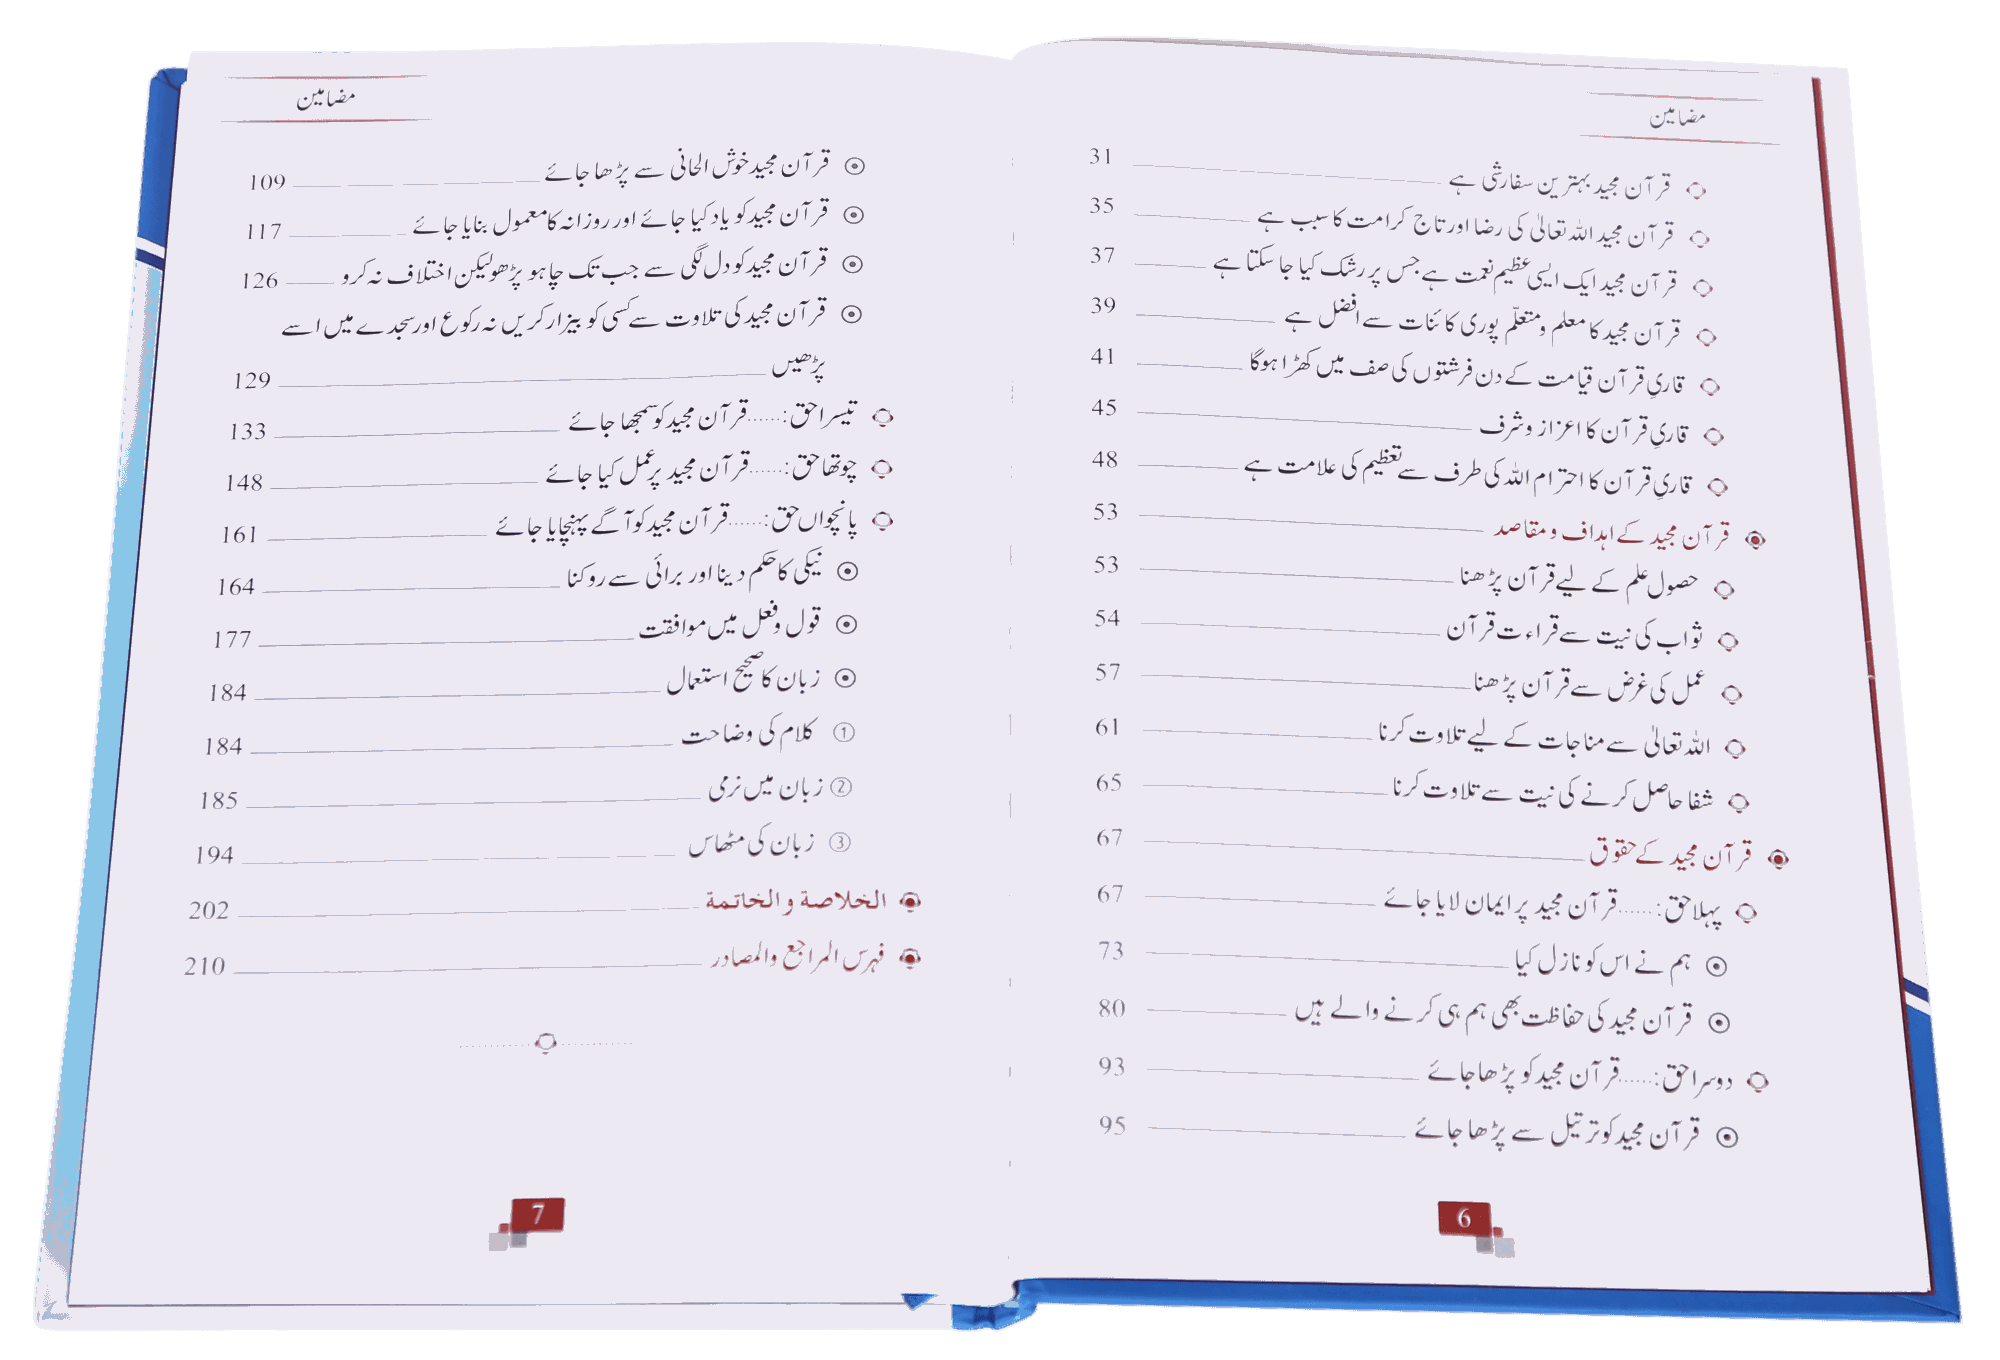 مضامین
قرآن مجید بہترین سفارشی ہے 31
قرآن مجید اللہ تعالیٰ کی رضا اور تاج کرامت کا سبب ہے 35
قرآن مجید ایک ایسی عظیم نعمت ہے جس پر رشک کیا جا سکتا ہے 37
قرآن مجید کا معلم و متعلّم پوری کائنات سے افضل ہے 39
قاریِ قرآن قیامت کے دن فرشتوں کی صف میں کھڑا ہوگا 41
قاریِ قرآن کا اعزاز و شرف 45
قاریِ قرآن کا احترام اللہ کی طرف سے تعظیم کی علامت ہے 48
قرآن مجید کے اہداف و مقاصد 53
حصول علم کے لیے قرآن پڑھنا 53
ثواب کی نیت سے قراءت قرآن 54
عمل کی غرض سے قرآن پڑھنا 57
اللہ تعالیٰ سے مناجات کے لیے تلاوت کرنا 61
شفا حاصل کرنے کی نیت سے تلاوت کرنا 65
قرآن مجید کے حقوق 67
پہلا حق:......قرآن مجید پر ایمان لایا جائے 67
ہم نے اس کو نازل کیا 73
قرآن مجید کی حفاظت بھی ہم ہی کرنے والے ہیں 80
دوسرا حق:......قرآن مجید کو پڑھا جائے 93
قرآن مجید کو ترتیل سے پڑھا جائے 95
6
مضامین
قرآن مجید خوش الحانی سے پڑھا جائے 109
قرآن مجید کو یاد کیا جائے اور روزانہ کا معمول بنایا جائے 117
قرآن مجید کو دل لگی سے جب تک چاہو پڑھو لیکن اختلاف نہ کرو 126
قرآن مجید کی تلاوت سے کسی کو بیزار کریں نہ رکوع اور سجدے میں اسے
پڑھیں 129
تیسرا حق:......قرآن مجید کو سمجھا جائے 133
چوتھا حق:......قرآن مجید پر عمل کیا جائے 148
پانچواں حق:......قرآن مجید کو آگے پہنچایا جائے 161
نیکی کا حکم دینا اور برائی سے روکنا 164
قول و فعل میں موافقت 177
زبان کا صحیح استعمال 184
① کلام کی وضاحت 184
② زبان میں نرمی 185
③ زبان کی مٹھاس 194
الخلاصة و الخاتمة 202
فہرس المراجع والمصادر 210
7